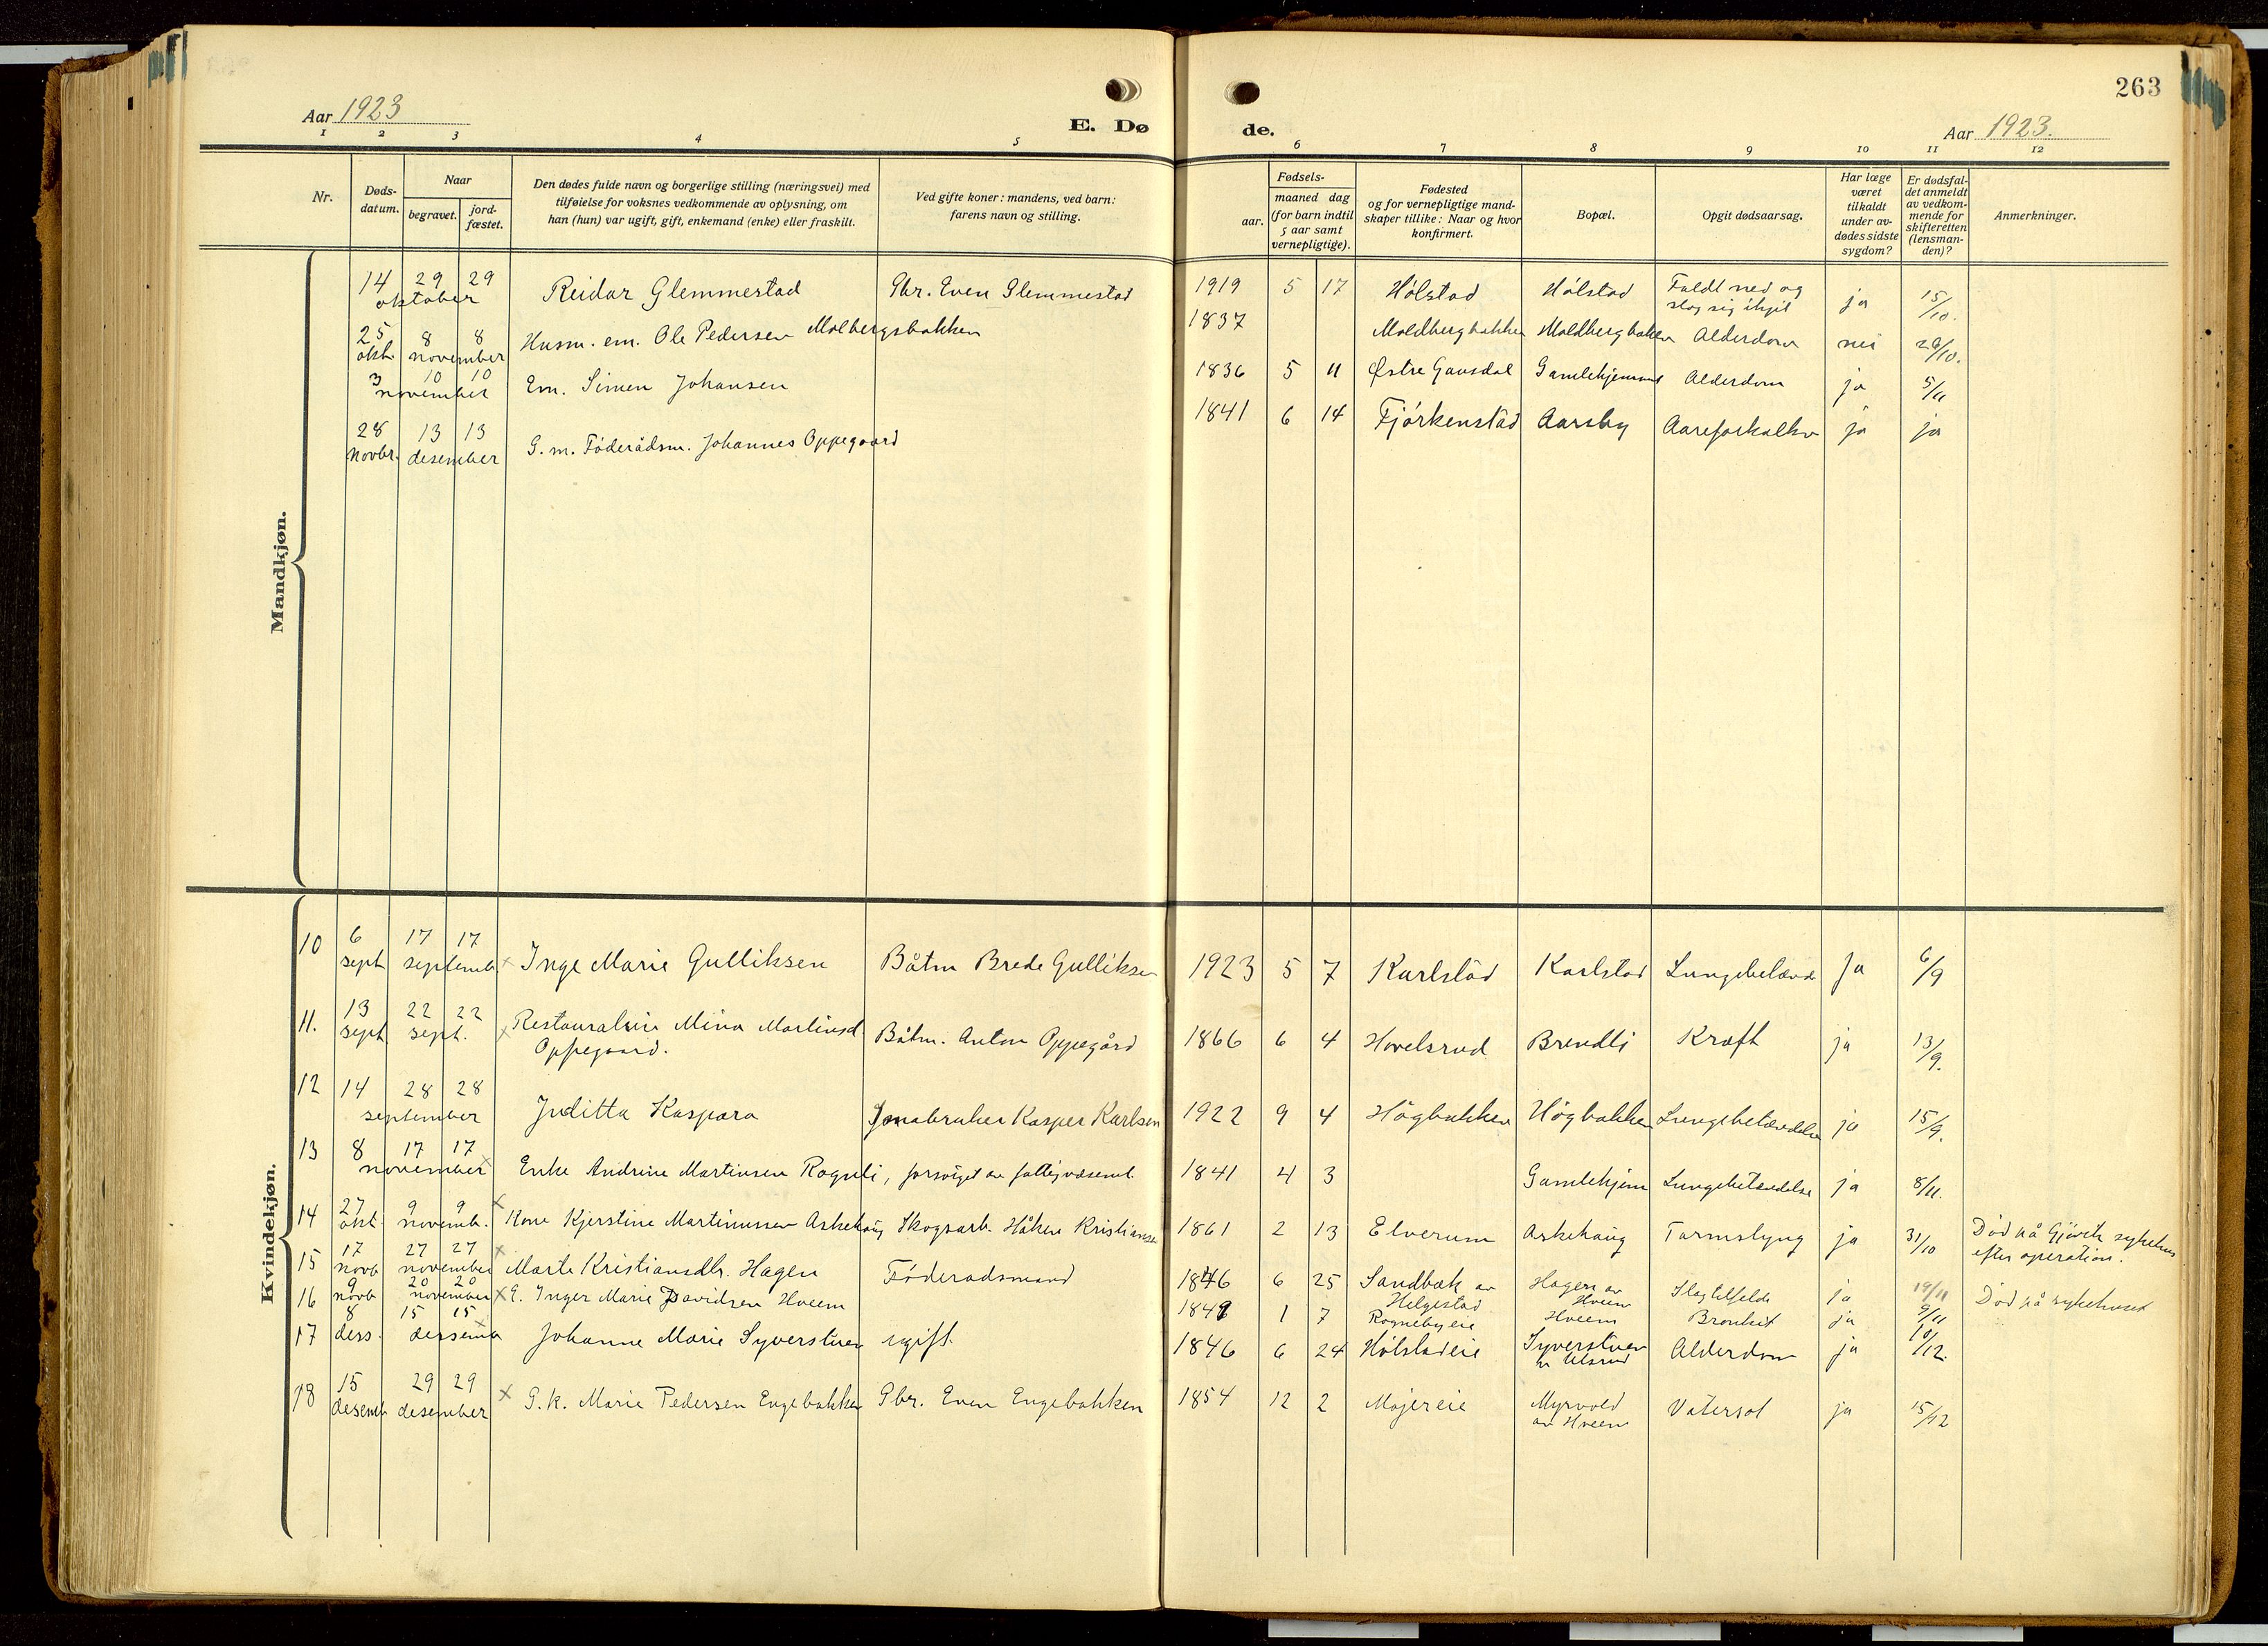 263
Aar 1923
E. Dø
de.
Aar 1923.
1 2 3 4 5 6 7 8 9 10 11 12
Nr.
Døds-
datum.
Naar
begravet.
jord-
fæstet.
Den dødes fulde navn og borgerlige stilling (næringsvei) med
tilføielse for voksnes vedkommende av oplysning, om
han (hun) var ugift, gift, enkemand (enke) eller fraskilt.
Ved gifte koner: mandens, ved barn:
farens navn og stilling.
Fødsels-
aar.
maaned dag
(for barn indtil
5 aar samt
vernepligtige).
Fødested
og for vernepligtige mand-
skaper tillike: Naar og hvor
konfirmert.
Bopæl.
Opgit dødsaarsag.
Har læge
været
tilkaldt
under av-
dødes sidste
sygdom?
Er dødsfal-
det anmeldt
av vedkom-
mende for
skifteretten
(lensman-
den)?
Anmerkninger.
Mandkjøn.
14 29 29 Reidar Glemmestad Gbr. Even Glemmestad 1919 5 17 Hølstad Hølstad Faldt ned og
oktober slog sig ihjel ja 15/10.
25 8 8 Husm. em. Ole Pedersen Molbergsbakken 1837 Moldbergbakken Moldbergbakken Alderdom nei 29/10.
okt. november
3 10 10 Em. Simen Johansen 1836 5 11 Østre Gausdal Gamlehjemmet Alderdom ja 5/11
november
28 13 13 G. m. Føderådsm. Johannes Oppegaard 1841 6 14 Fjørkenstad Aarsby Aareforkalkn ja ja
novbr. desember
Kvindekjøn.
10 6 17 17 x Inge Marie Gulliksen Båtm Brede Gulliksen 1923 5 7 Karlstad Karlstad Lungebetænd ja 6/9
sept septemb.
11. 13 22 22 x Restauratrise Mina Martinsd. Båtm. Anton Oppegård 1866 6 4 Hovelsrud Brendli Kræft ja 13/9.
sept sept. Oppegaard.
12 14 28 28 Juditta Kaspara Småbruker Kasper Karlsen 1922 9 4 Høgbakken Høgbakken Lungebetændelse ja 15/9.
september
13 8 17 17 x Enke Andrine Martinsen Rognli, forsørget av fattigvæsenet. 1841 4 3 Gamlehjem Lungebetændelse ja 8/11.
november
14 27 9 9 x Kone Kjerstine Martinussen Askehaug Skogsarb. Håken Kristiansen 1861 2 13 Elverum Askehaug Tarmslyng ja 31/10 Død på Gjøvik sykehus
okt. novemb. efter operation.
15 17 27 27 x Marte Kristiansdtr. Hagen Føderadsmand 1846 6 25 Sandbæk av Hagen av Slagtilfelde ja 19/11
novb november Helgestad Hveem
16 9 20 20 x E. Inger Marie Davidsen Hveem 1849 1 7 Rognebyeie Hveem Bronkit ja 9/11 Død på sykehuset
novb november
17 8 15 15 x Johanne Marie Syverstuen ugift. 1846 6 24 Hølstadeie Syverstuen Alderdom ja 10/12.
ders. dersemb
18 15 29 29 x G. k. Marie Pedersen Engebakken Gbr. Even Engebakken 1854 12 2 Majereie Myrvold Vatersot ja 15/12
desemb desember av Hveem